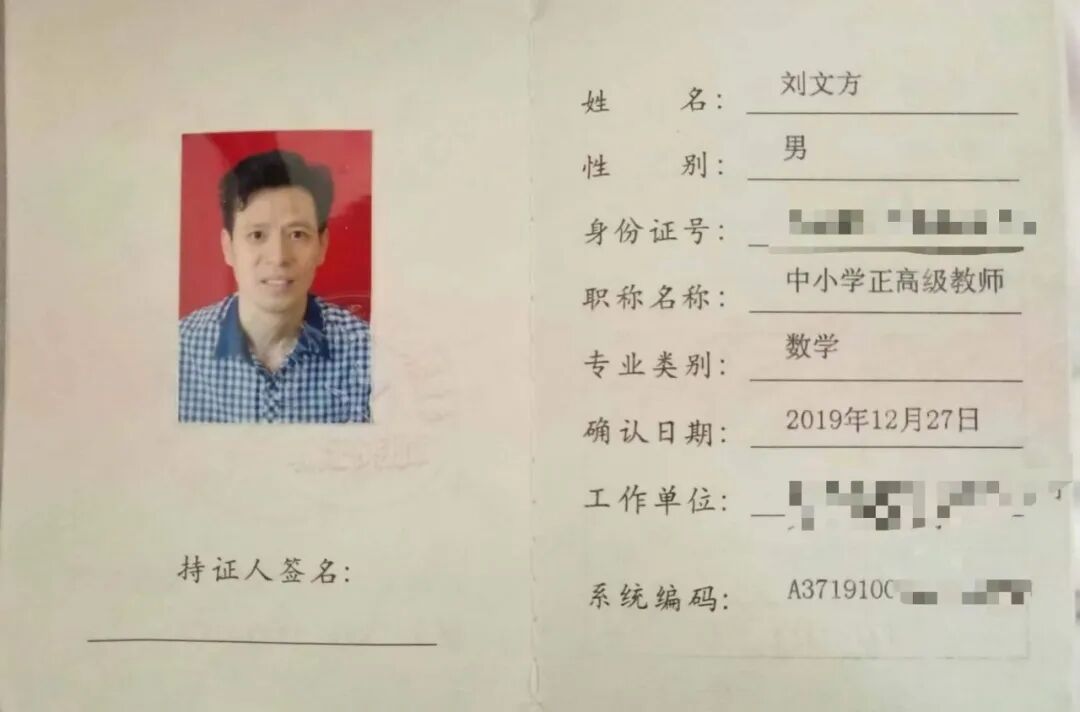 姓 名： 刘文方
性 别： 男
身份证号：
职称名称： 中小学正高级教师
专业类别： 数学
确认日期： 2019年12月27日
工作单位：
系统编码： A3719100
持证人签名：